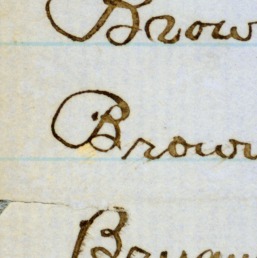 Brow
Brown
Bryan